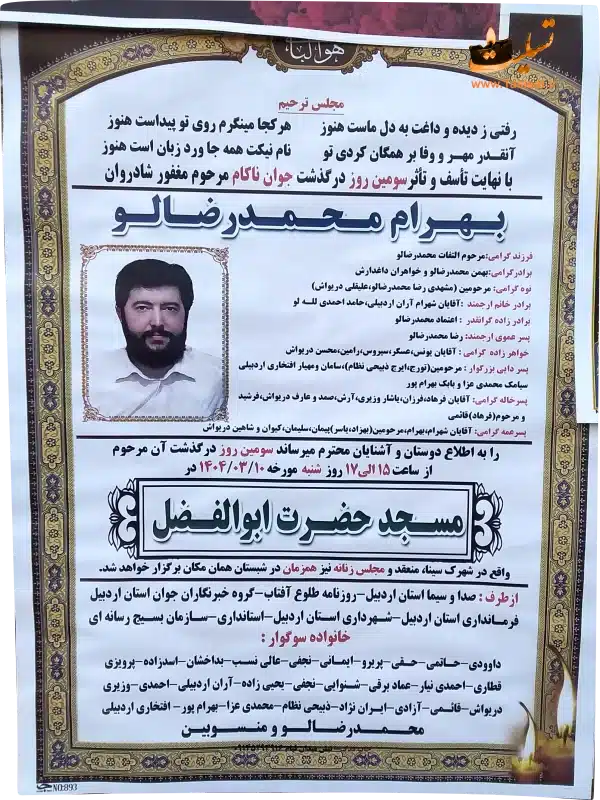 تسلیت
هوالباقی
مجلس ترحیم
رفتی ز دیده و داغت به دل ماست هنوز هرکجا مینگرم روی تو پیداست هنوز
آنقدر مهر و وفا بر همگان کردی تو نام نیکت همه جا ورد زبان است هنوز
با نهایت تأسف و تأثر سومین روز درگذشت جوان ناکام مرحوم مغفور شادروان
بهرام محمدرضالو
فرزند گرامی: مرحوم التفات محمدرضالو
برادرگرامی: بهمن محمدرضالو و خواهران داغدارش
نوه گرامی: مرحومین (مشهدی رضا محمدرضالو،علیقلی دریواش)
برادر خانم ارجمند :آقایان شهرام آران اردبیلی،حامد احمدی لله لو
برادر زاده گرانقدر : اعتماد محمدرضالو
پسر عموی ارجمند: رضا محمدرضالو
خواهر زاده گرامی : آقایان یونس،عسگر،سیروس،رامین،محسن دریواش
پسر دایی بزرگوار : مرحومین(تورج،ایرج ذبیحی نظام)،سامان ومهیار افتخاری اردبیلی
سیامک محمدی عزا و بابک بهرام پور
پسرخاله گرامی: آقایان فرهاد،فرزان،یاشار وزیری،آرش،صمد و عارف دریواش،فرشید
و مرحوم(فرهاد)قائمی
پسرعمه گرامی: آقایان شهرام،بهرام،مرحومین(بهزاد،یاسر)پیمان،سلیمان،کیوان و شاهین دریواش
را به اطلاع دوستان و آشنایان محترم میرساند سومین روز درگذشت آن مرحوم
از ساعت ۱۵ الی ۱۷ روز شنبه مورخه ۱۴۰۴/۰۳/۱۰ در
مسجد حضرت ابوالفضل
واقع در شهرک سینا، منعقد و مجلس زنانه نیز همزمان در شبستان همان مکان برگزار خواهد شد.
ازطرف : صدا و سیما استان اردبیل-روزنامه طلوع آفتاب-گروه خبرنگاران جوان استان اردبیل
فرمانداری استان اردبیل-شهرداری استان اردبیل-استانداری-سازمان بسیج رسانه ای
خانواده سوگوار :
داوودی-حاتمی-حقی-پریرو-ایمانی-نجفی-عالی نسب-بداخشان-اسدزاده-پرویزی
قطاری-احمدی نیار-عماد برقی-شنوایی-نجفی-یحیی زاده-آران اردبیلی-احمدی-وزیری
دریواش-قائمی-آزادی-ایران نژاد-ذبیحی نظام-محمدی عزا-بهرام پور- افتخاری اردبیلی
محمدرضالو و منسوبین
NO:893